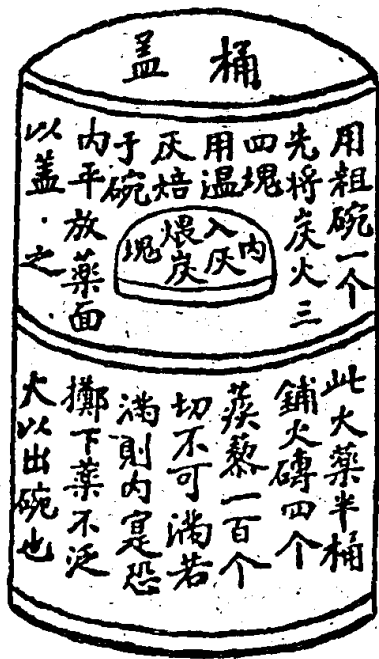 桶盖
用粗碗一个
先将炭火三
四塊
用温
灰焙
于碗
内平放薬面
以盖之
内
入灰
煨炭
塊
此大薬半桶
鋪火磚四个
蒺藜一百个
切不可满若
满則内寔恐
擲下薬不泛
大以出碗也